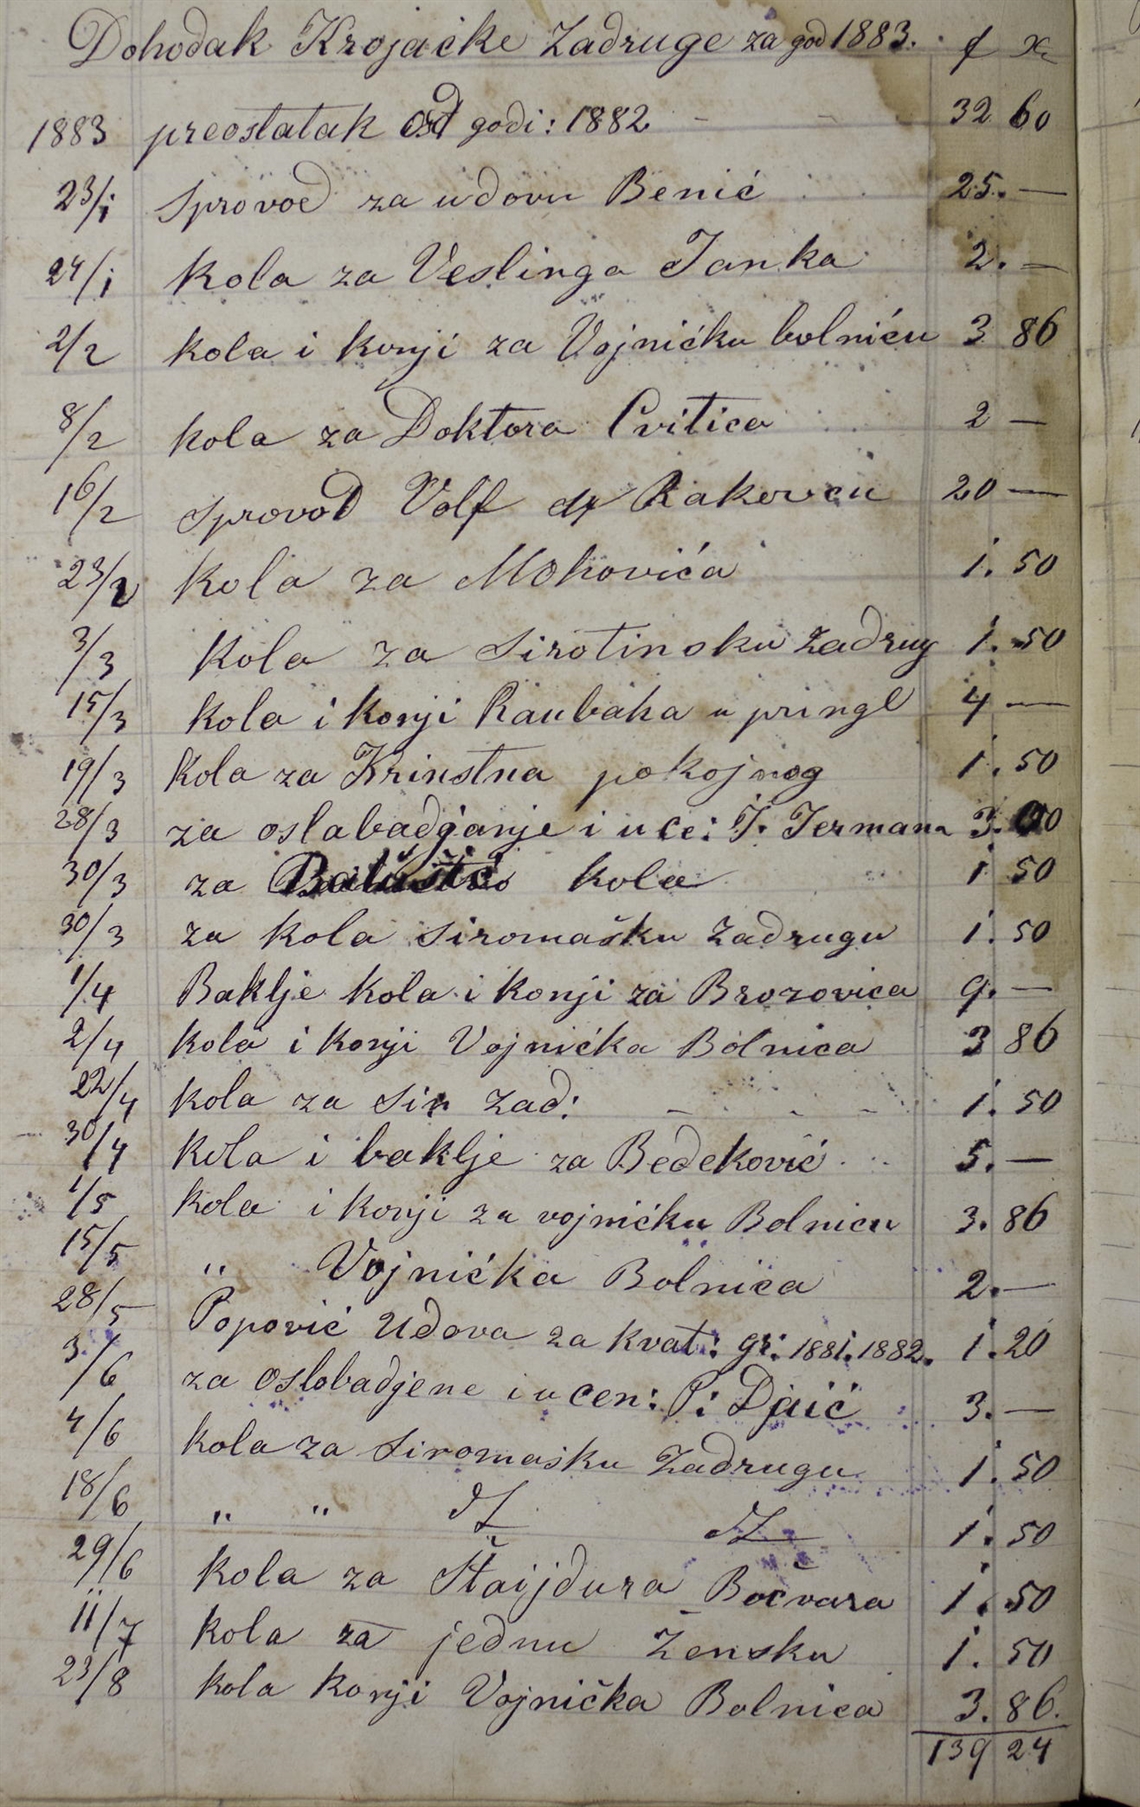 Dohodak Krojačke Zadruge za god 1883. f x
1883 preostatak od godi: 1882 - - 32 60
23/i Sprovod za udovu Benić 25. —
24/i Kola za Veslinga Janka 2. —
2/2 kola i konji za Vojničku bolnicu 3 86
8/2 kola za Doktora Cvitica 2 —
16/2 sprovod Volf Rakovcu 20 —
23/2 Kola za Mohovića i. 50
3/3 Kola za Sirotinsku zadrug i. 50
15/3 kola i konji Raubaha u pringl 4 —
19/3 kola za Krinstna pokojnog i. 50
28/3 za oslabadganje i uce: J. Jerman 3.
30/3 za kola i 50
30/3 za kola siromašku Zadrugu i. 50
1/4 Baklje kola i konji za Brozovica 9. —
2/4 kola i konji Vojnićka Bolnica 3 86
22/4 kola za sir zad: - - - - i. 50
30/4 kola i baklje za Bedeković 5. —
1/5 kola i konji za vojnićku Bolnicu 3. 86
15/5 " Vojnićka Bolnica 2. —
28/5 Popović Udova za kvat: gr: 1881. 1882. i. 20
3/6 za oslobadjene i ucen: P: Djaić 3. —
4/6 kola za siromasku zadrugu i. 50
18/6 " " i. 50
29/6 kola za Štaijdura Bočvara i. 50
ii/7 kola za jednu žensku i. 50
23/8 kola konji Vojnička Bolnica 3. 86.
139 24